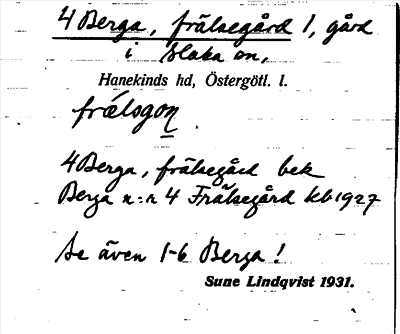 4 Berga, frälsegård 1, gård
i Slaka sn,
Hanekinds hd, Östergötl. l.
frälsgon.
4 Berga, frälsegård bek
Berga n:r 4 Frälsegård kb 1927
Se även 1-6 Berga!
Sune Lindqvist 1931.